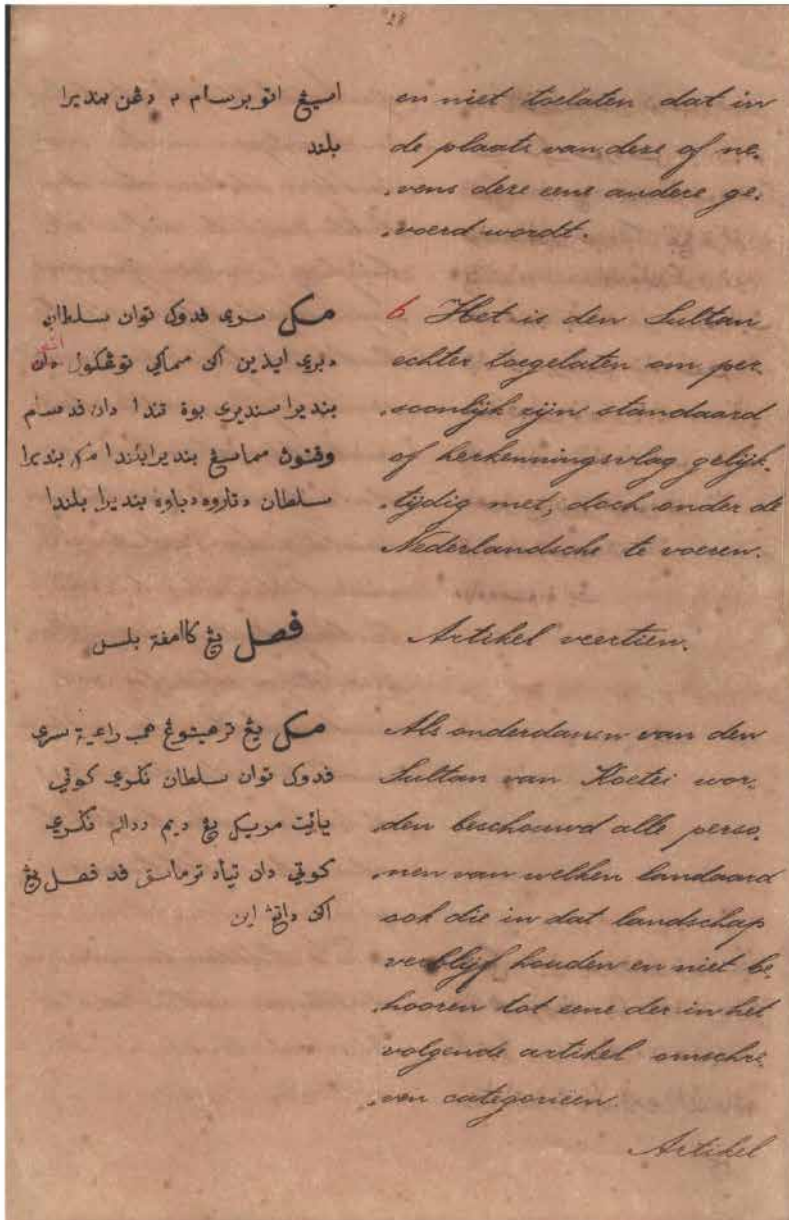 28
اسيڠ اتو برسام ٢ دڠن بنديرا
بلند
مک سري ڤدوک توان سلطان
دبري ايذين اکن مماکي توڠکول اتو
بنديرا سنديري بوة تندا دان ڤد سام
وقتوڽ مماسڠ بنديرا بلندا مک بنديرا
سلطان دتاروه دباوه بنديرا بلندا
فصل يڠ کاامڤة بلس
مک يڠ ترهيتوڠ همب راعية سري
ڤدوک توان سلطان نݢري کوتي
يائيت مريک يڠ ديم ددالم نݢري
کوتي دان تياد ترماسق ڤد فصل يڠ
اکن داتڠ اين
en niet toelaten dat in
de plaats van deze of ne-
vens deze eene andere ge-
voerd wordt.
b Het is den Sultan
echter toegelaten om per-
soonlijk zijn standaard
of herkenningsvlag gelijk-
tijdig met, doch onder de
Nederlandsche te voeren.
Artikel veertien.
Als onderdanen van den
Sultan van Koetei wor-
den beschouwd alle perso-
nen van welken landaard
ook die in dat landschap
verblijf houden en niet be-
hooren tot eene der in het
volgende artikel omschre-
ven categorieen.
Artikel